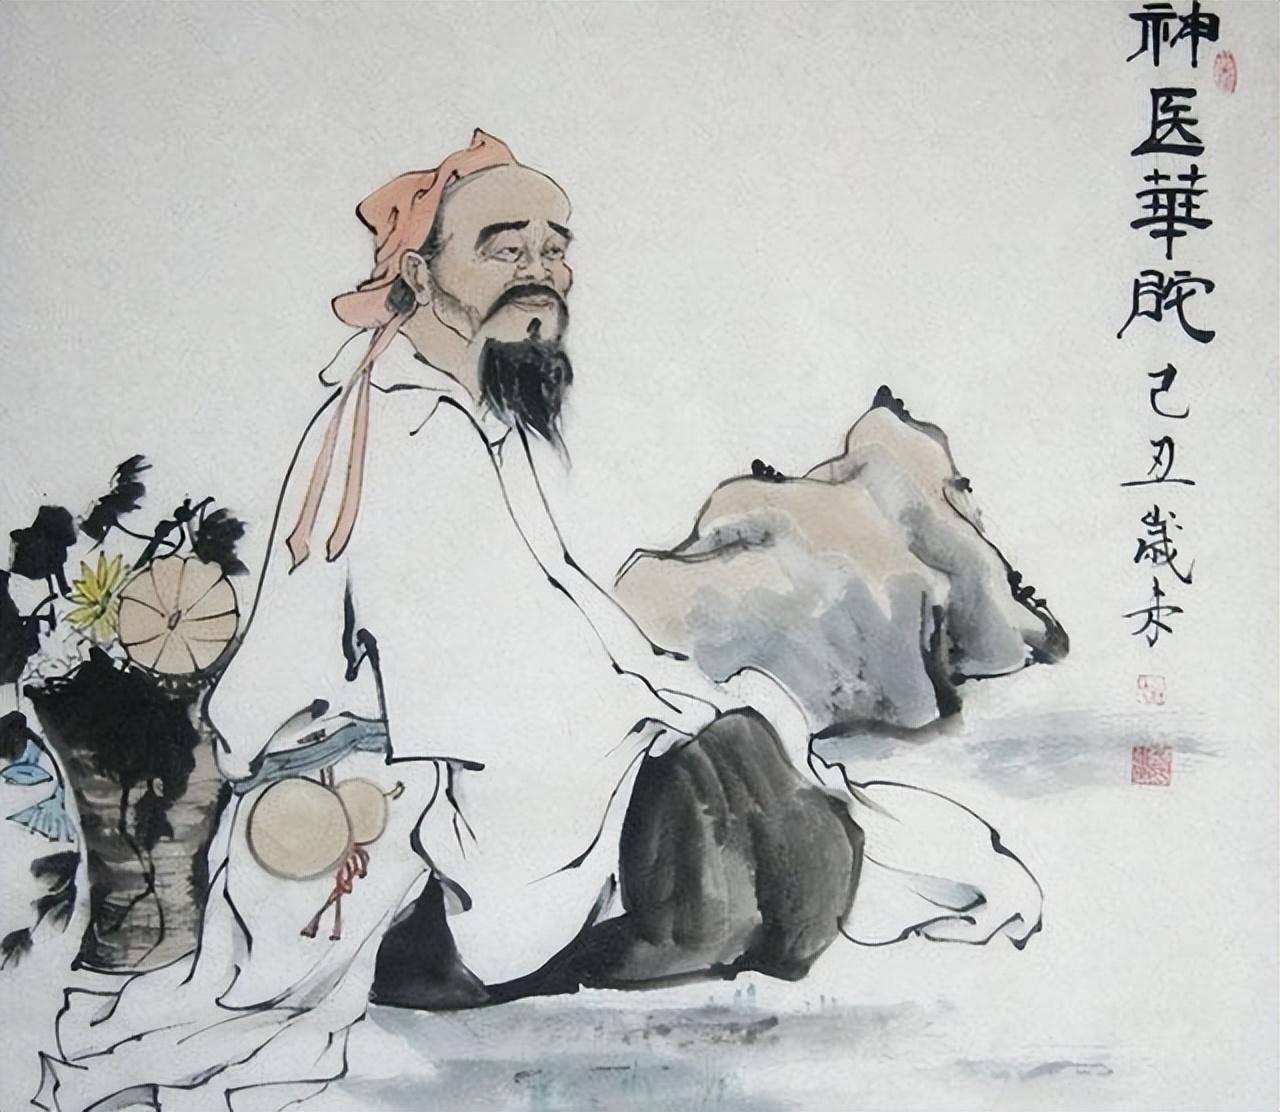 神医華陀己丑歲末